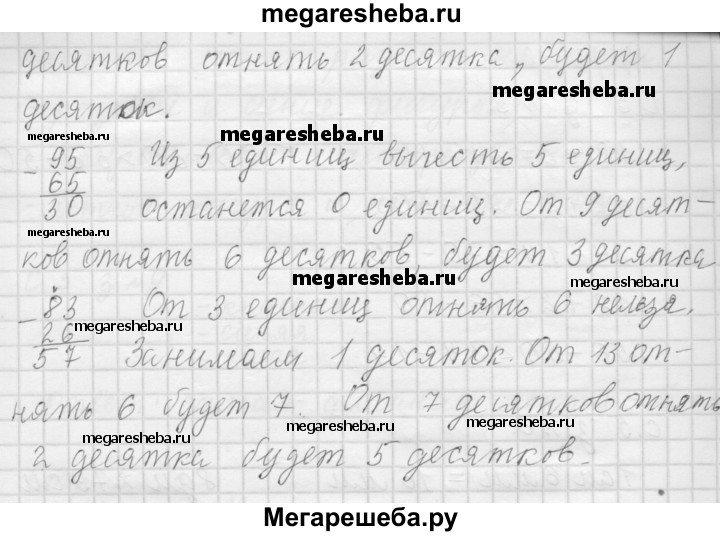 megaresheba.ru
десятков отнять 2 десятка, будет 1
megaresheba.ru
десяток.
megaresheba.ru
megaresheba.ru
- 95 Из 5 единиц вычесть 5 единиц,
65
30 останется 0 единиц. От 9 десят-
megaresheba.ru
ков отнять 6 десятков будет 3 десятка
megaresheba.ru
megaresheba.ru
- 83 От 3 единиц отнять 6 нельзя.
26
megaresheba.ru
57 Занимаем 1 десяток. От 13 от-
нять 6 будет 7. От 7 десятков отнять
megaresheba.ru
megaresheba.ru
2 десятка будет 5 десятков.
Мегарешеба.ру